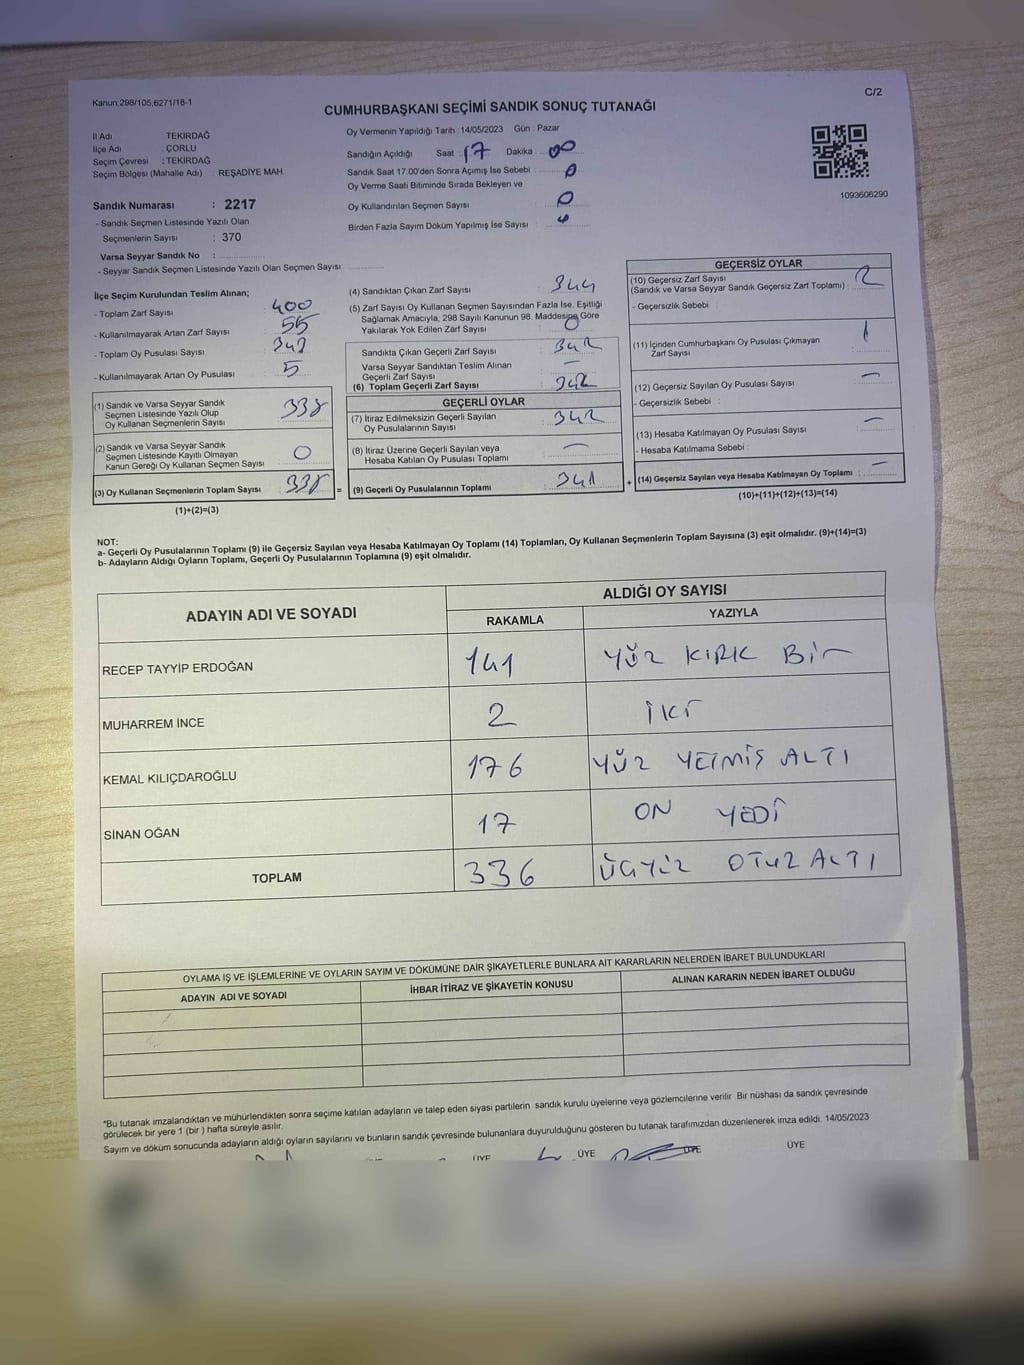 Kanun;298/105,6271/18-1
C/2
CUMHURBAŞKANI SEÇİMİ SANDIK SONUÇ TUTANAĞI
İl Adı TEKİRDAĞ
İlçe Adı : ÇORLU
Seçim Çevresi : TEKİRDAĞ
Seçim Bölgesi (Mahalle Adı) REŞADİYE MAH.
Sandık Numarası : 2217
- Sandık Seçmen Listesinde Yazılı Olan
Seçmenlerin Sayısı : 370
Varsa Seyyar Sandık No :
- Seyyar Sandık Seçmen Listesinde Yazılı Olan Seçmen Sayısı:
Oy Vermenin Yapıldığı Tarih : 14/05/2023 Gün : Pazar
Sandığın Açıldığı Saat : 17 Dakika : 00
Sandık Saat 17:00'den Sonra Açımış İse Sebebi : 0
Oy Verme Saati Bitiminde Sırada Bekleyen ve
Oy Kullandırılan Seçmen Sayısı : 0
Birden Fazla Sayım Döküm Yapılmış İse Sayısı :
1093606290
İlçe Seçim Kurulundan Teslim Alınan;
- Toplam Zarf Sayısı : 400
- Kullanılmayarak Artan Zarf Sayısı : 55
- Toplam Oy Pusulası Sayısı :
- Kullanılmayarak Artan Oy Pusulası : 5
(1) Sandık ve Varsa Seyyar Sandık
Seçmen Listesinde Yazılı Olup
Oy Kullanan Seçmenlerin Sayısı : 338
(2) Sandık ve Varsa Seyyar Sandık
Seçmen Listesinde Kayıtlı Olmayan
Kanun Gereği Oy Kullanan Seçmen Sayısı : 0
(3) Oy Kullanan Seçmenlerin Toplam Sayısı : 338
(1)+(2)=(3)
=
(4) Sandıktan Çıkan Zarf Sayısı : 344
(5) Zarf Sayısı Oy Kullanan Seçmen Sayısından Fazla İse, Eşitliği
Sağlamak Amacıyla, 298 Sayılı Kanunun 98. Maddesine Göre
Yakılarak Yok Edilen Zarf Sayısı : 0
Sandıkta Çıkan Geçerli Zarf Sayısı : 342
Varsa Seyyar Sandıktan Teslim Alınan
Geçerli Zarf Sayısı : —
(6) Toplam Geçerli Zarf Sayısı : 342
GEÇERLİ OYLAR
(7) İtiraz Edilmeksizin Geçerli Sayılan
Oy Pusulalarının Sayısı : 342
(8) İtiraz Üzerine Geçerli Sayılan veya
Hesaba Katılan Oy Pusulası Toplamı : —
(9) Geçerli Oy Pusulalarının Toplamı : 341
+
GEÇERSİZ OYLAR
(10) Geçersiz Zarf Sayısı
(Sandık ve Varsa Seyyar Sandık Geçersiz Zarf Toplamı) : 2
- Geçersizlik Sebebi :
(11) İçinden Cumhurbaşkanı Oy Pusulası Çıkmayan
Zarf Sayısı : 1
(12) Geçersiz Sayılan Oy Pusulası Sayısı : —
- Geçersizlik Sebebi :
(13) Hesaba Katılmayan Oy Pusulası Sayısı : —
- Hesaba Katılmama Sebebi :
(14) Geçersiz Sayılan veya Hesaba Katılmayan Oy Toplamı : —
(10)+(11)+(12)+(13)=(14)
NOT:
a- Geçerli Oy Pusulalarının Toplamı (9) ile Geçersiz Sayılan veya Hesaba Katılmayan Oy Toplamı (14) Toplamları, Oy Kullanan Seçmenlerin Toplam Sayısına (3) eşit olmalıdır. (9)+(14)=(3)
b- Adayların Aldığı Oyların Toplamı, Geçerli Oy Pusulalarının Toplamına (9) eşit olmalıdır.
ADAYIN ADI VE SOYADI ALDIĞI OY SAYISI
RAKAMLA YAZIYLA
RECEP TAYYİP ERDOĞAN 141 YÜZ KIRK BİR
MUHARREM İNCE 2 İKİ
KEMAL KILIÇDAROĞLU 176 YÜZ YETMİŞ ALTI
SİNAN OĞAN 17 ON YEDİ
TOPLAM 336 ÜÇYÜZ OTUZ ALTI
OYLAMA İŞ VE İŞLEMLERİNE VE OYLARIN SAYIM VE DÖKÜMÜNE DAİR ŞİKAYETLERLE BUNLARA AİT KARARLARIN NELERDEN İBARET BULUNDUKLARI
ADAYIN ADI VE SOYADI İHBAR İTİRAZ VE ŞİKAYETİN KONUSU ALINAN KARARIN NEDEN İBARET OLDUĞU
*Bu tutanak imzalandıktan ve mühürlendikten sonra seçime katılan adayların ve talep eden siyasi partilerin sandık kurulu üyelerine veya gözlemcilerine verilir. Bir nüshası da sandık çevresinde
görülecek bir yere 1 (bir ) hafta süreyle asılır.
Sayım ve döküm sonucunda adayların aldığı oyların sayılarını ve bunların sandık çevresinde bulunanlara duyurulduğunu gösteren bu tutanak tarafımızdan düzenlenerek imza edildi. 14/05/2023
ÜYE ÜYE ÜYE ÜYE